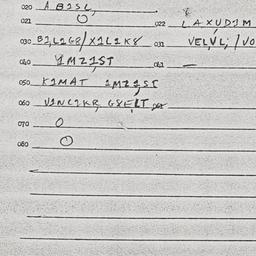 020 A B1SL,
021 O 022 LAXUDJM
030 B1,L1G8/X1L1K8 031 VELVL; /VO
040 1MZ1ST 041 —
050 K1MAT 1MZ1ST
060 V1NC1KR G8ELT,
070 O
080 O